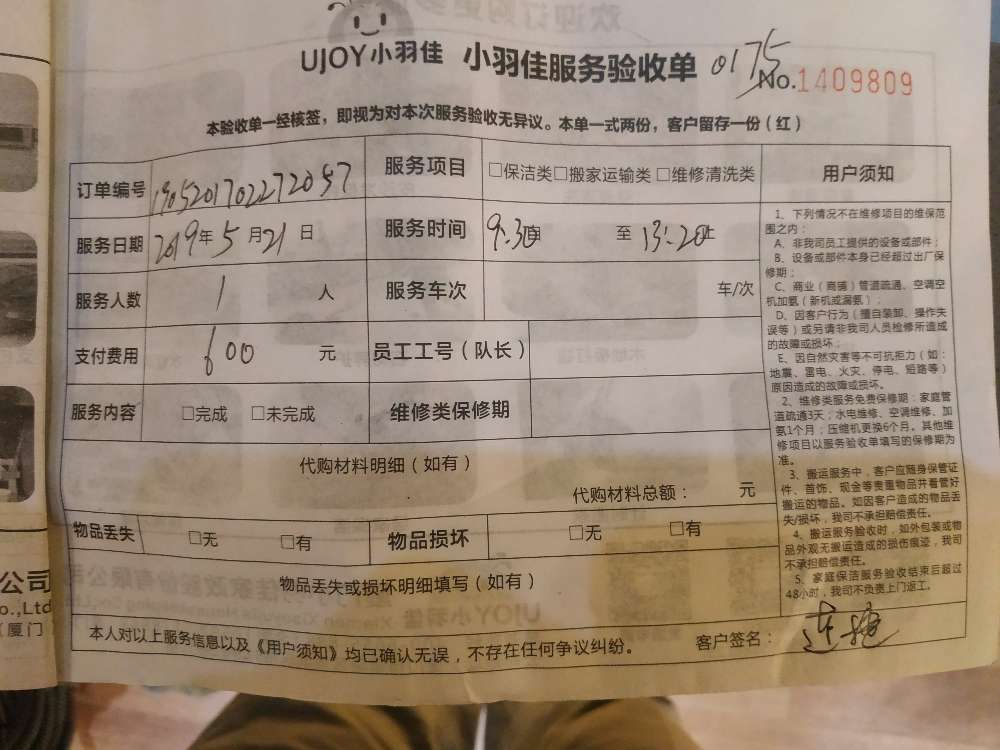 UJOY小羽佳 小羽佳服务验收单 0175
No.1409809
本验收单一经核签，即视为对本次服务验收无异议。本单一式两份，客户留存一份（红）
订单编号 1905201702272057 服务项目 □保洁类□搬家运输类 □维修清洗类
服务日期 2019年5月21日 服务时间 9:30 至 13:20止
服务人数 1 人 服务车次 车/次
支付费用 600 元 员工工号（队长）
服务内容 □完成 □未完成 维修类保修期
代购材料明细（如有）
代购材料总额： 元
物品丢失 □无 □有 物品损坏 □无 □有
物品丢失或损坏明细填写（如有）
用户须知
1、下列情况不在维修项目的维保范
围之内：
A、非我司员工提供的设备或部件；
B、设备或部件本身已经超过出厂保
修期；
C、商业（商铺）管道疏通、空调空
机加氨（新机或漏氨）；
D、因客户行为（擅自装卸、操作失
误等）或另请非我司人员检修所造成
的故障或损坏；
E、因自然灾害等不可抗拒力（如：
地震、雷电、火灾、停电、短路等）
原因造成的故障或损坏。
2、维修类服务免费保修期：家庭管
道疏通3天；水电维修、空调维修、加
氨1个月；压缩机更换6个月。其他维
修项目以服务验收单填写的保修期为
准。
3、搬运服务中，客户应随身保管证
件、首饰、现金等贵重物品并看管好
搬运的物品。如因客户造成的物品丢
失/损坏，我司不承担赔偿责任。
4、搬运服务验收时，如外包装或物
品外观无搬运造成的损伤痕迹，我司
不承担赔偿责任。
5、家庭保洁服务验收结束后超过
48小时，我司不负责上门返工。
本人对以上服务信息以及《用户须知》均已确认无误，不存在任何争议纠纷。 客户签名：
公司
o.,Ltd
（厦门